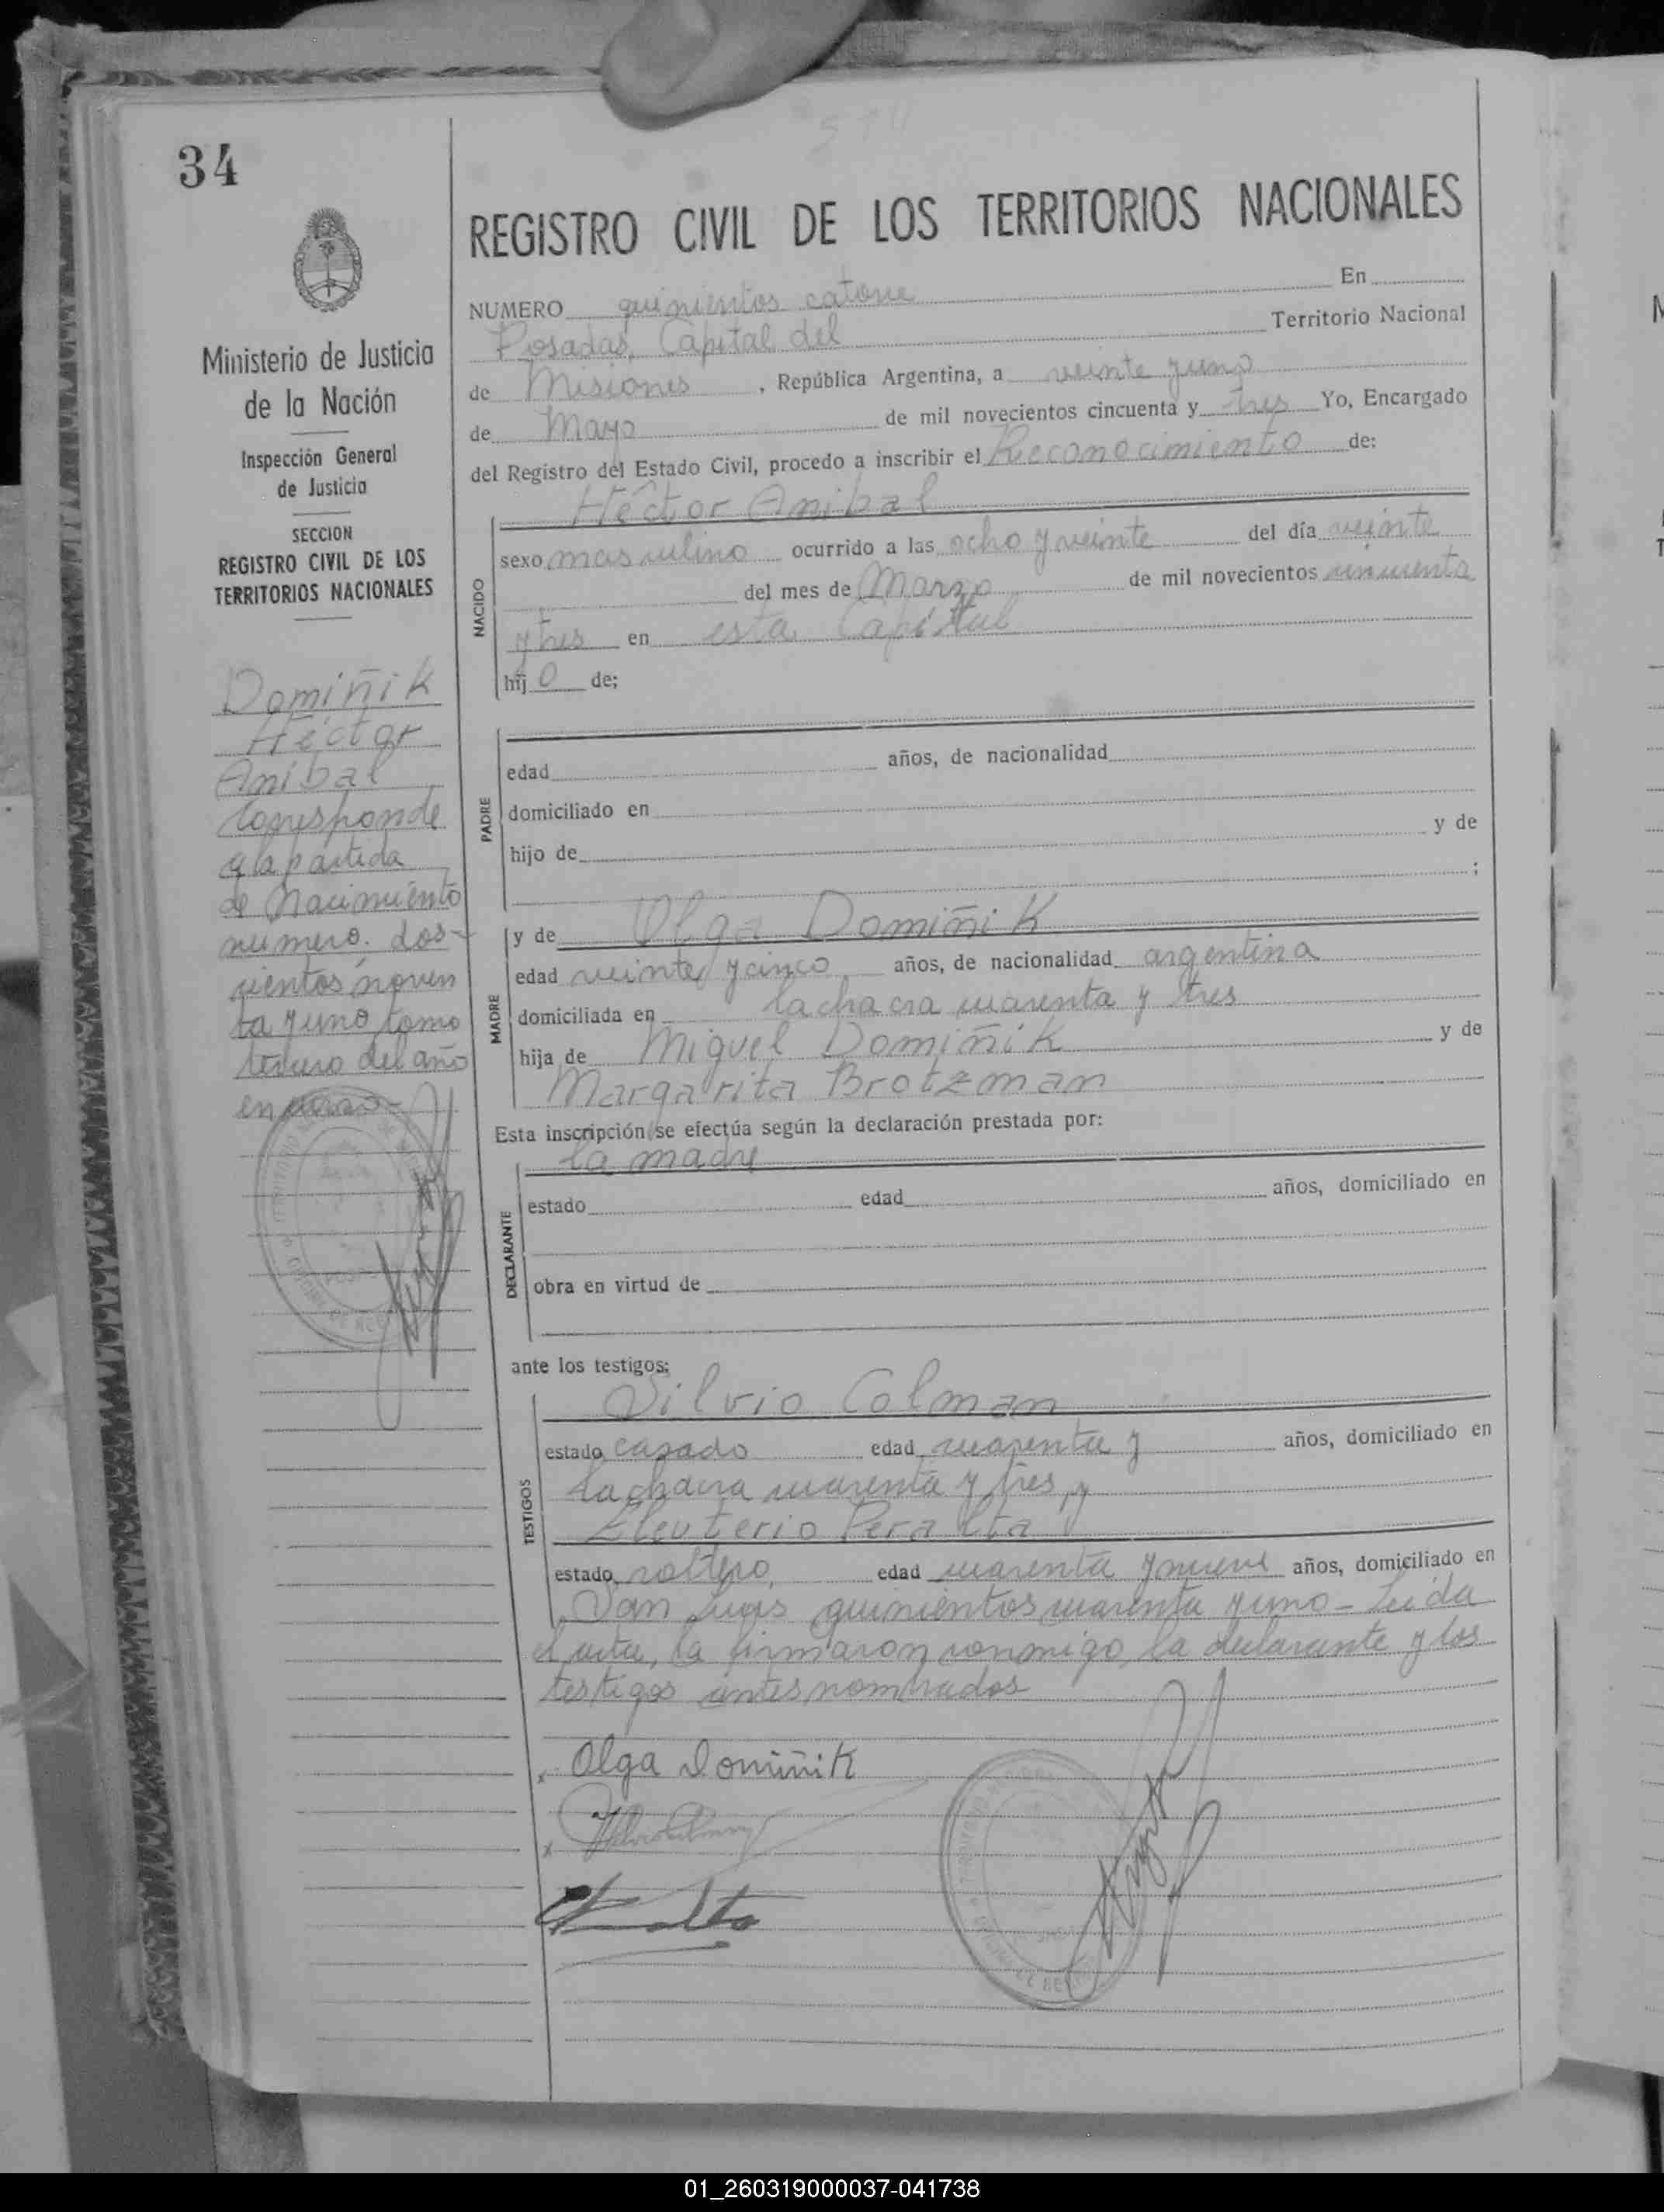 34
514
Ministerio de Justicia
de la Nación
Inspección General
de Justicia
SECCION
REGISTRO CIVIL DE LOS
TERRITORIOS NACIONALES
Domiñik
Héctor
Anibal
Corresponde
a la partida
de Nacimiento
número. dos-
cientos noven
ta y uno, tomo
tercero del año
en
REGISTRO CIVIL DE LOS TERRITORIOS NACIONALES
NUMERO quinientos catorce En
Posadas, Capital del Territorio Nacional
de Misiones, República Argentina, a veinte y uno
de Mayo de mil novecientos cincuenta y tres Yo, Encargado
del Registro del Estado Civil, procedo a inscribir el Reconocimiento de:
Héctor Anibal
NACIDO
sexo masculino ocurrido a las ocho y veinte del día veinte
del mes de Marzo de mil novecientos cincuenta
y tres en esta Capital
hij o de;
PADRE
edad años, de nacionalidad
domiciliado en
hijo de y de
;
MADRE
y de Olga Domiñik
edad veinte y cinco años, de nacionalidad argentina
domiciliada en la chacra cuarenta y tres
hija de Miguel Domiñik y de
Margarita Brotzman
Esta inscripción se efectúa según la declaración prestada por:
la madre
DECLARANTE
estado edad años, domiciliado en
obra en virtud de
ante los testigos:
Silvio Colman
TESTIGOS
estado casado edad cuarenta y años, domiciliado en
la chacra cuarenta y tres, y
Eleuterio Peralta
estado soltero, edad cuarenta y nueve años, domiciliado en
San Luis quinientos cuarenta y uno - Leida
el acta, la firmaron conmigo, la declarante y los
testigos antes nombrados
Olga Domiñik
01_260319000037-041738